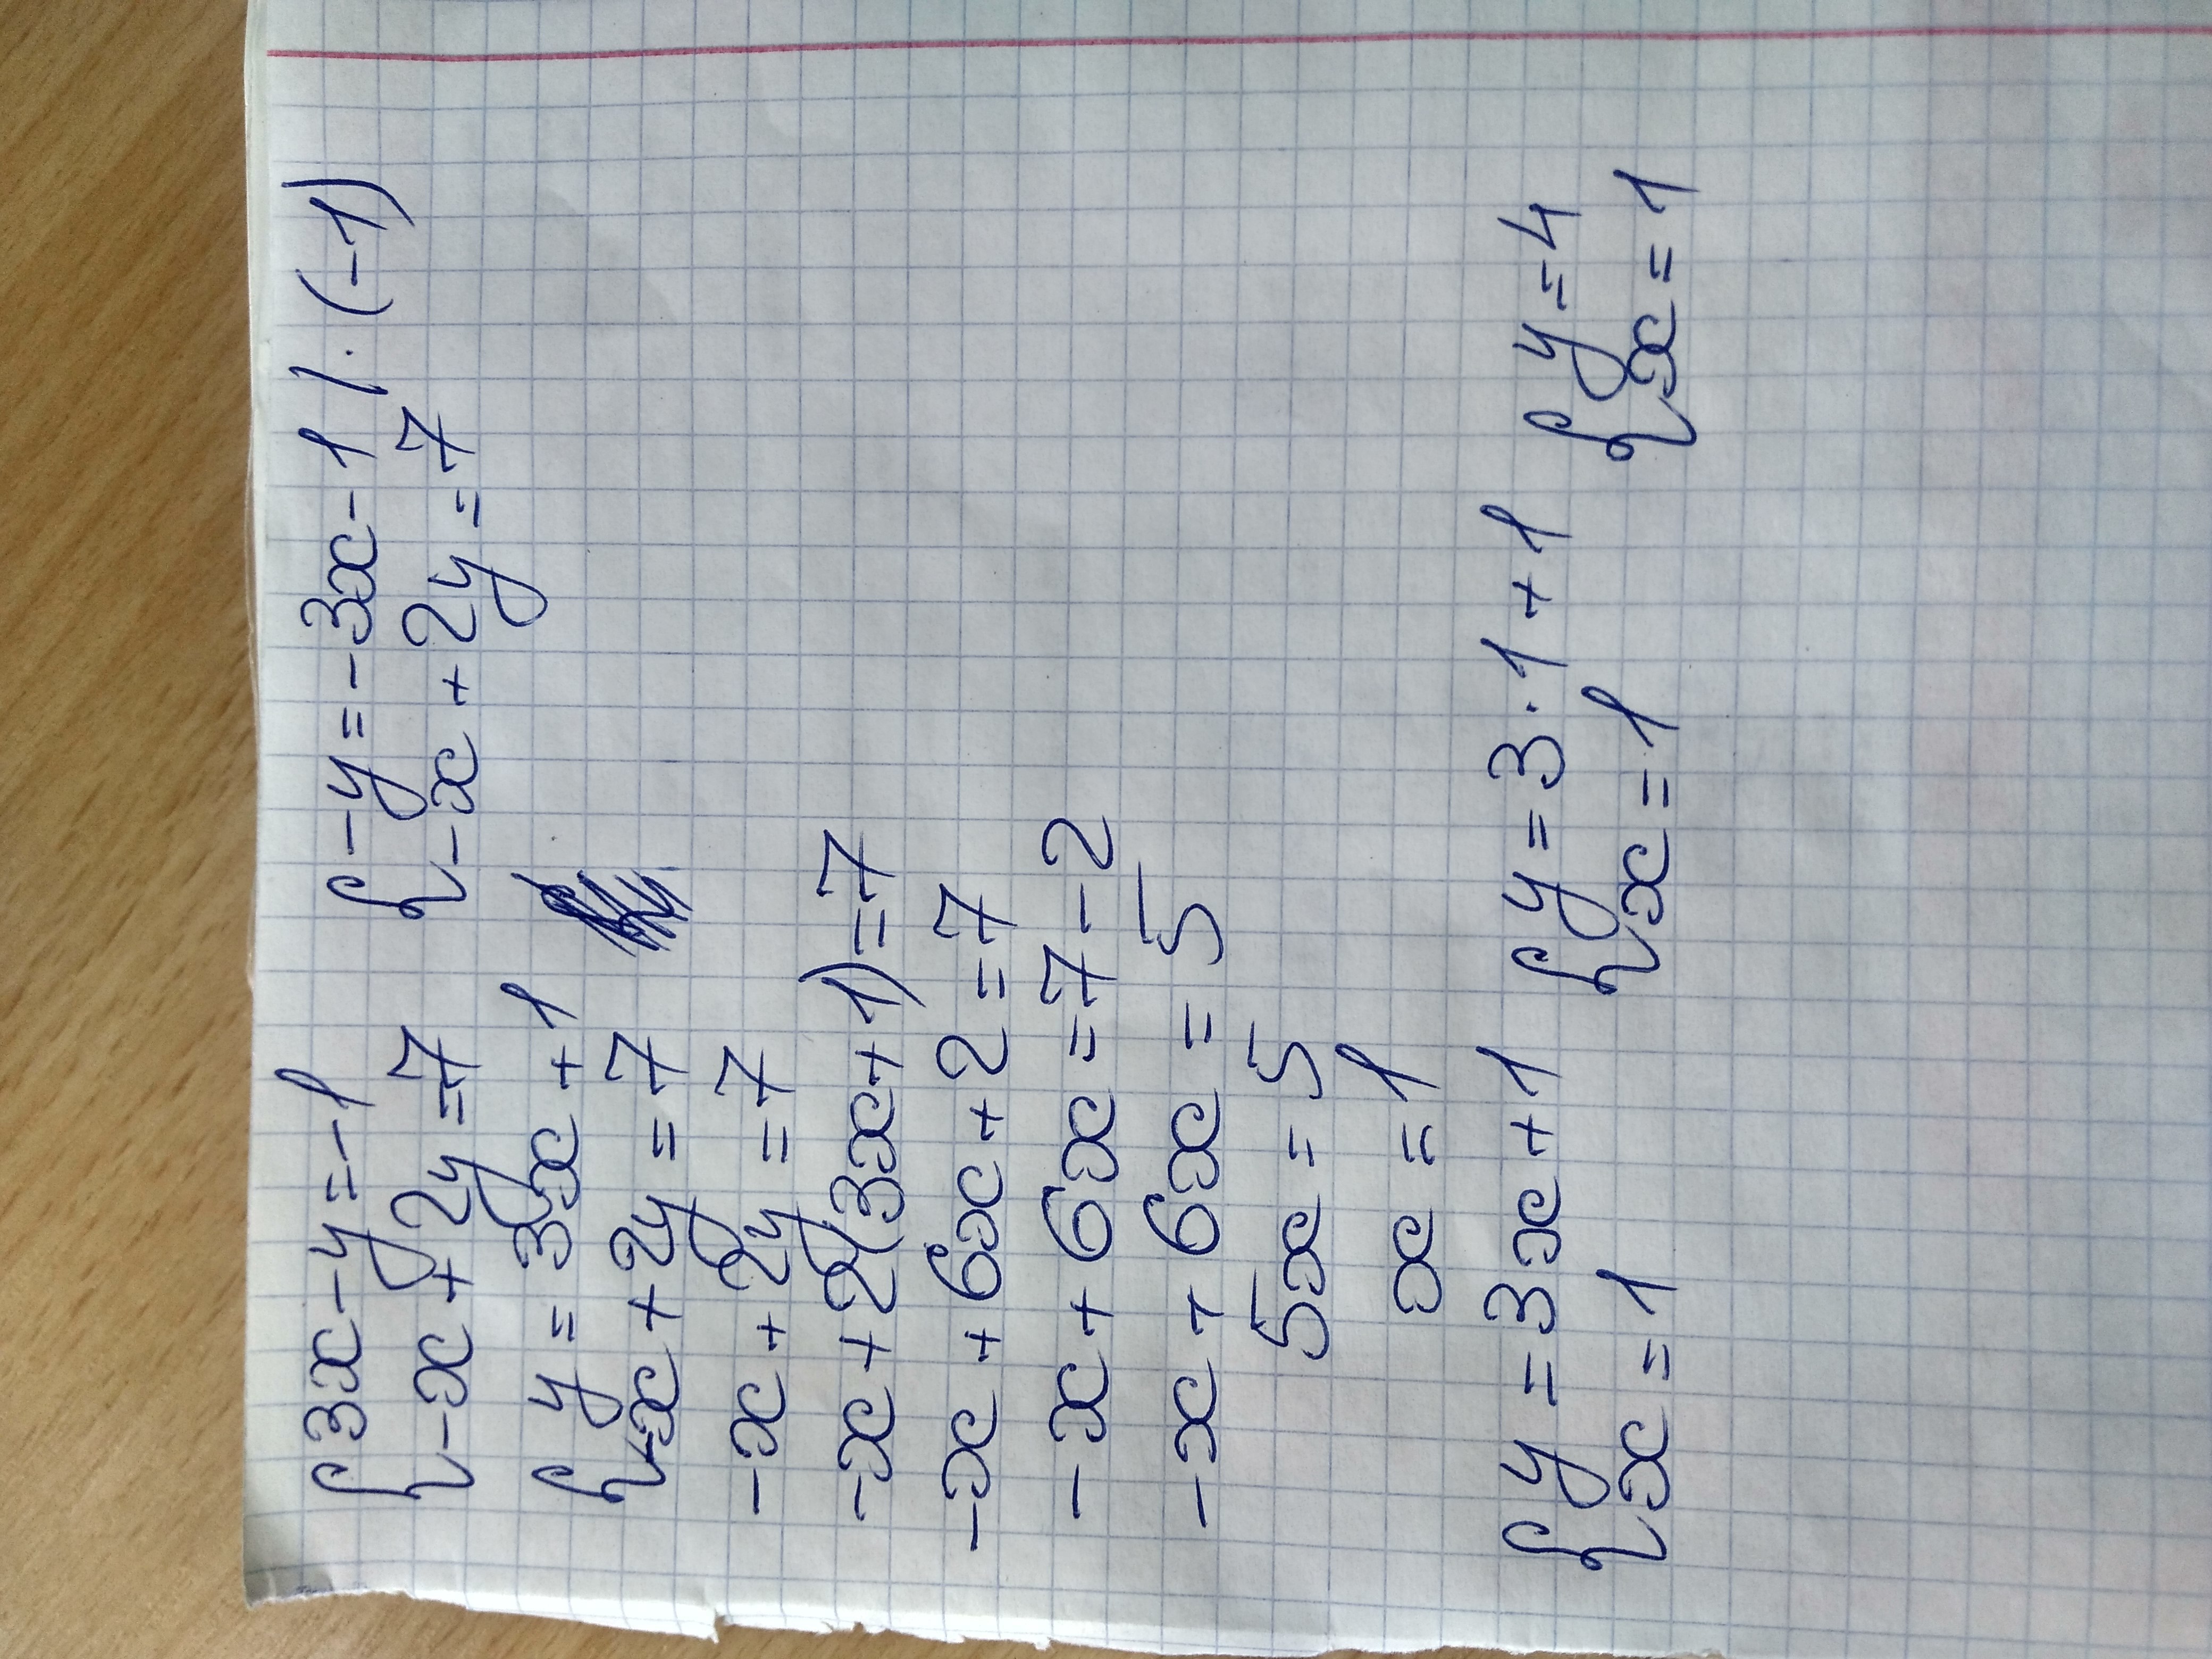 {3x-y=-1 {-y=-3x-1 |·(-1)
{-x+2y=7 {-x+2y=7
{y=3x+1
{-x+2y=7
-x+2y=7
-x+2(3x+1)=7
-x+6x+2=7
-x+6x=7-2
-x+6x=5
5x=5
x=1
{y=3x+1 {y=3·1+1 {y=4
{x=1 {x=1 {x=1